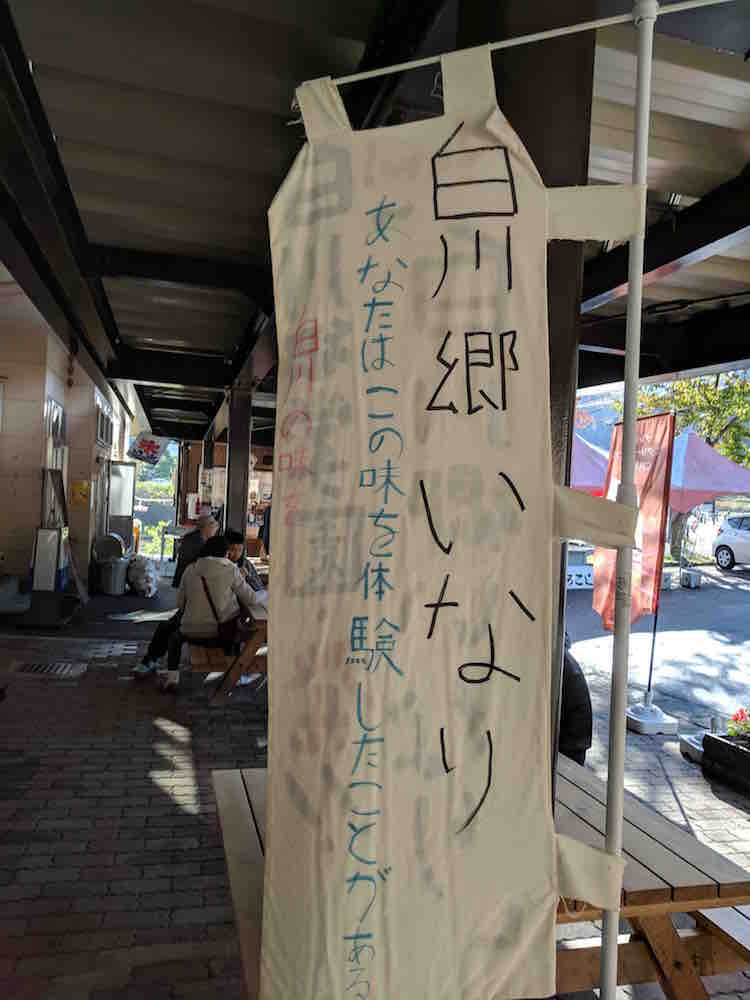 白川郷いなり
あなたはこの味を体験したことがある
白川の味を